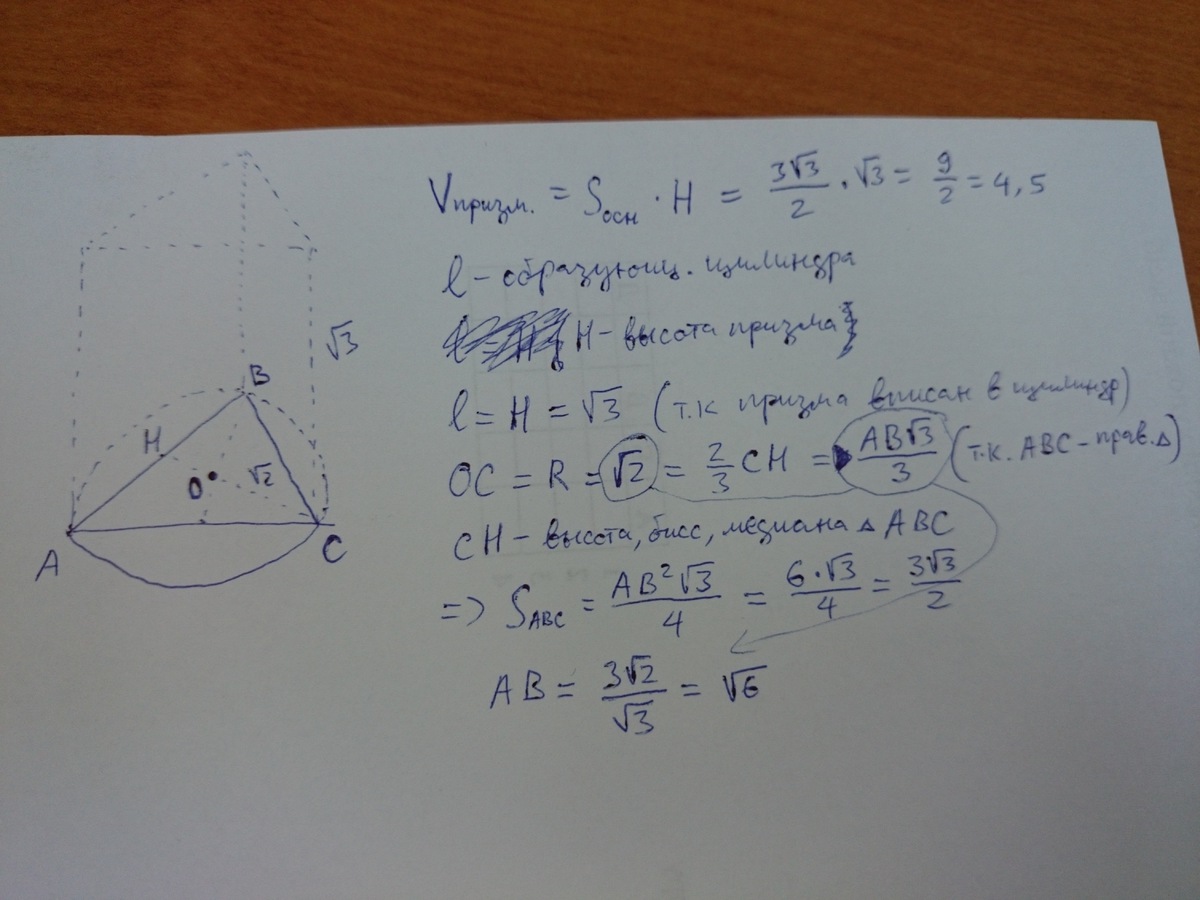 Vпризм. = Sосн · H = 3√3/2 · √3 = 9/2 = 4,5
l – образующ. цилиндра
H – высота призма
l = H = √3 (т.к призма вписан в цилиндр)
OC = R = √2 = 2/3 CH = AB√3/3 (т.к. ABC – прав. Δ)
CH – высота, бисс, медиана Δ ABC
=> SABC = AB²√3/4 = 6·√3/4 = 3√3/2
AB = 3√2/√3 = √6
√3
B
H
O
√2
A
C